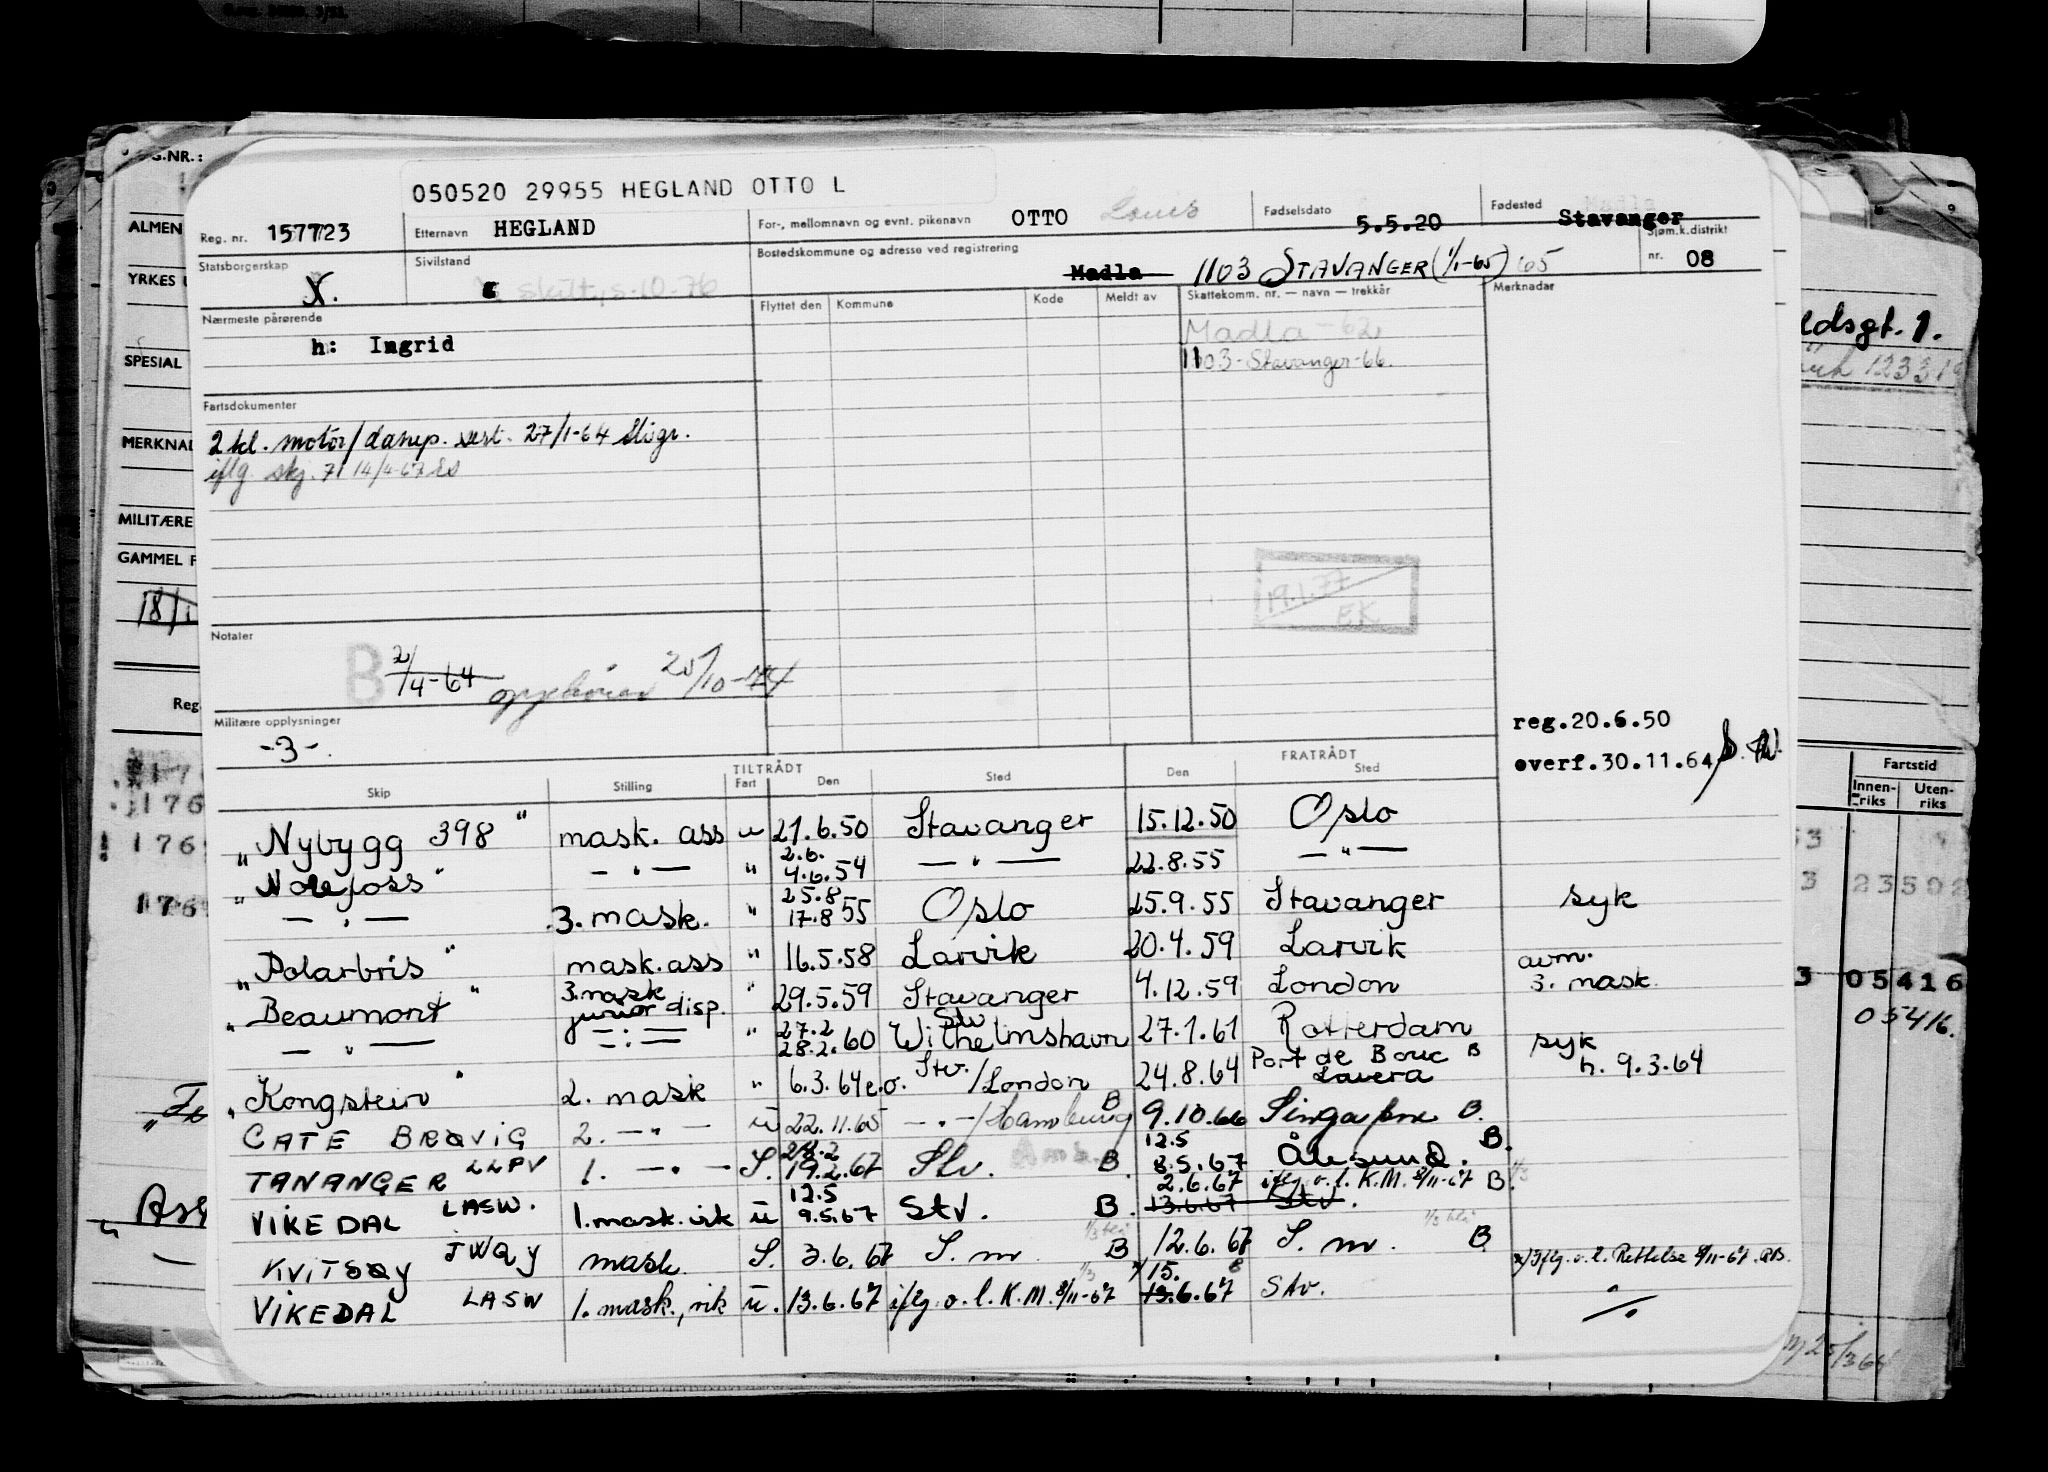 G.NR.:
050520 29955 HEGLAND OTTO L
ALMEN
Reg. nr. 157723 Etternavn HEGLAND For-, mellomnavn og evnt. pikenavn OTTO Louis Fødselsdato 5.5.20 Fødested Stavanger Madla
Statsborgerskap Sivilstand Bostedskommune og adresse ved registrering Sjøm.k.distrikt
YRKES
Madla 1103 STAVANGER (1/1-65) 65 nr. 08
skilt, s-10-76
Nærmeste pårørende Flyttet den Kommune Kode Meldt av Skattekomm. nr. — navn — trekkår Merknadar
h: Ingrid Madla-62
1103-Stavanger-66.
ldsgt. 1.
SPESIAL
Fartsdokumenter
2 kl. motor/damp. sert. 27/1-64
iflg. skj. 71 14/4-67
MERKNAD
MILITÆRE
GAMMEL F
19.1.77
EK
Notater
B 2/4-64 opphører 25/10-74
Reg
Militære opplysninger
-3-.
reg.20.6.50
overf.30.11.64
TILTRÅDT FRATRÅDT
Skip Stilling Fart Den Sted Den Sted
Fartstid
Innen-riks Uten-riks
"Nybygg 398" mask. ass u 21.6.50 Stavanger 15.12.50 Oslo
"Norefoss" — " — " 2.6. 4.6.54 — " — 22.8.55 — " —
— " — 3. mask. " 25.8 17.8 55 Oslo 25.9.55 Stavanger syk
"Polarbris" mask. ass " 16.5.58 Larvik 20.4.59 Larvik
"Beaumont" 3. mask junior disp. " 29.5.59 Stavanger 4.12.59 London avm. 3. mask.
— " — — " — " 27.2 28.2.60 Stv Wilhelmshavn 27.1.61 Rotterdam syk
"Kongstein" 2. mask " 6.3.64 e.o. Stv./London 24.8.64 Port de Bouc B Lavera h. 9.3.64
CATE BRØVIG 2. — " — u 22.11.65 — " —/Hamburg B 9.10.66 Singapore B.
TANANGER LLPV 1. — " — S. 28.2 19.2.67 Stv. B. 12.5 8.5.67 Ålesund. B.
VIKEDAL LASW. 1. mask. vik u 12.5 9.5.67 Stv. B. 2.6.67 iflg. o.l. K.M. 8/11-67 B. 13.6.67 Stv.
KVITSØY JWQY mask. S. 3.6.67 S.m. B 12.6.67 S.m. B
VIKEDAL LASW 1. mask., vik u. 13.6.67 iflg. o.l. K.M. 8/11-67 x/15. 13.6.67 Stv. x) Iflg. o.l. Rettelse 8/11-67
23502
05416
05416.